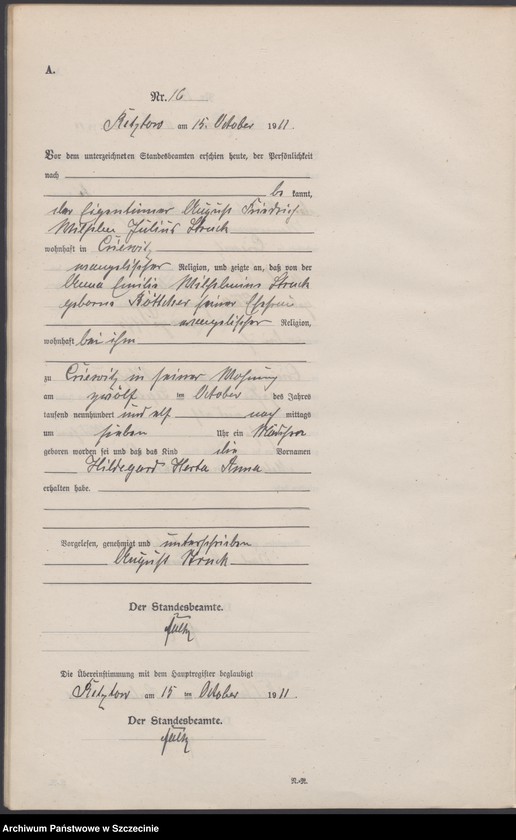 A.
Nr. 16
Retztow am 15. October 1911.
Vor dem unterzeichneten Standesbeamten erschien heute, der Persönlichkeit
nach
be kannt,
der Eigentümer August Friedrich
Wilhelm Julius Struck
wohnhaft in Criewitz
evangelischer Religion, und zeigte an, daß von der
Anna Emilie Wilhelmine Struck
geborene Böttcher seiner Ehefrau
evangelischer Religion,
wohnhaft bei ihm
zu Criewitz in seiner Wohnung
am zwölf ten October des Jahres
tausend neunhundert und elf nach mittags
um sieben Uhr ein Mädchen
geboren worden sei und daß das Kind die Vornamen
Hildegard Herta Anna
erhalten habe.
Vorgelesen, genehmigt und unterschrieben
August Struck
Der Standesbeamte.
Die Übereinstimmung mit dem Hauptregister beglaubigt
Retztow am 15 ten October 1911.
Der Standesbeamte.
N.-R.
Archiwum Państwowe w Szczecinie